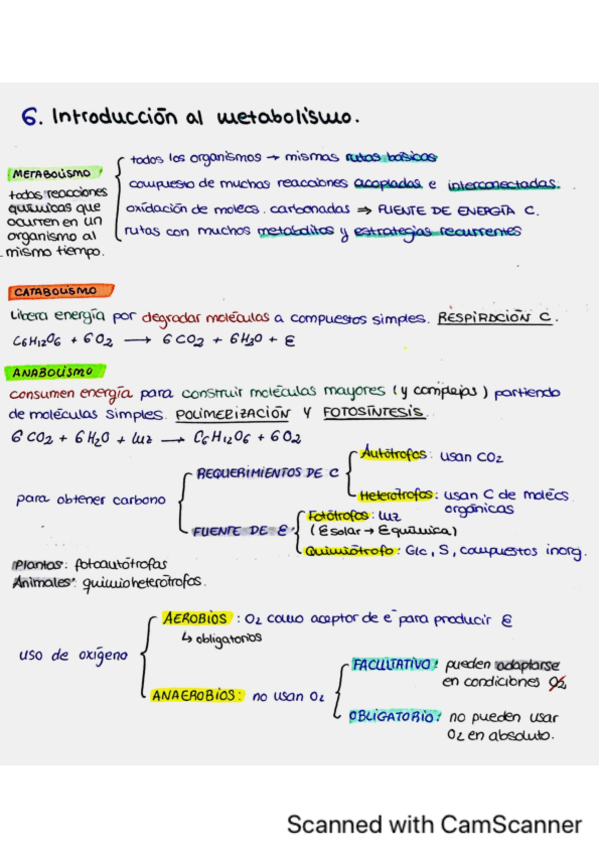 6. Introducción al metabolismo.
METABOLISMO:
todas reacciones
químicas que
ocurren en un
organismo al
mismo tiempo.
todos los organismos → mismas rutas básicas
compuesto de muchas reacciones acopladas e interconectadas.
oxidación de molecs. carbonadas ⇒ FUENTE DE ENERGÍA C.
rutas con muchos metabolitos y estrategias recurrentes
CATABOLISMO
Libera energía por degradar moléculas a compuestos simples. RESPIRACIÓN C.
C6H12O6 + 6O2 → 6CO2 + 6H2O + E
ANABOLISMO
consumen energía para construir moléculas mayores (y complejas) partiendo
de moléculas simples. POLIMERIZACIÓN Y FOTOSÍNTESIS.
6CO2 + 6H2O + luz → C6H12O6 + 6O2
para obtener carbono
REQUERIMIENTOS DE C
Autótrofos: usan CO2
Heterótrofos: usan C de molécs
orgánicas
FUENTE DE E
Fotótrofos: luz
(E solar → E química)
Quimiótrofo: Glc, S, compuestos inorg.
Plantas: fotoautótrofas
Animales: quimioheterótrofos.
uso de oxígeno
AEROBIOS: O2 como aceptor de e⁻ para producir E
↳ obligatorios
ANAEROBIOS: no usan O2
FACULTATIVO: pueden adaptarse
en condiciones O2
OBLIGATORIO: no pueden usar
O2 en absoluto.
Scanned with CamScanner